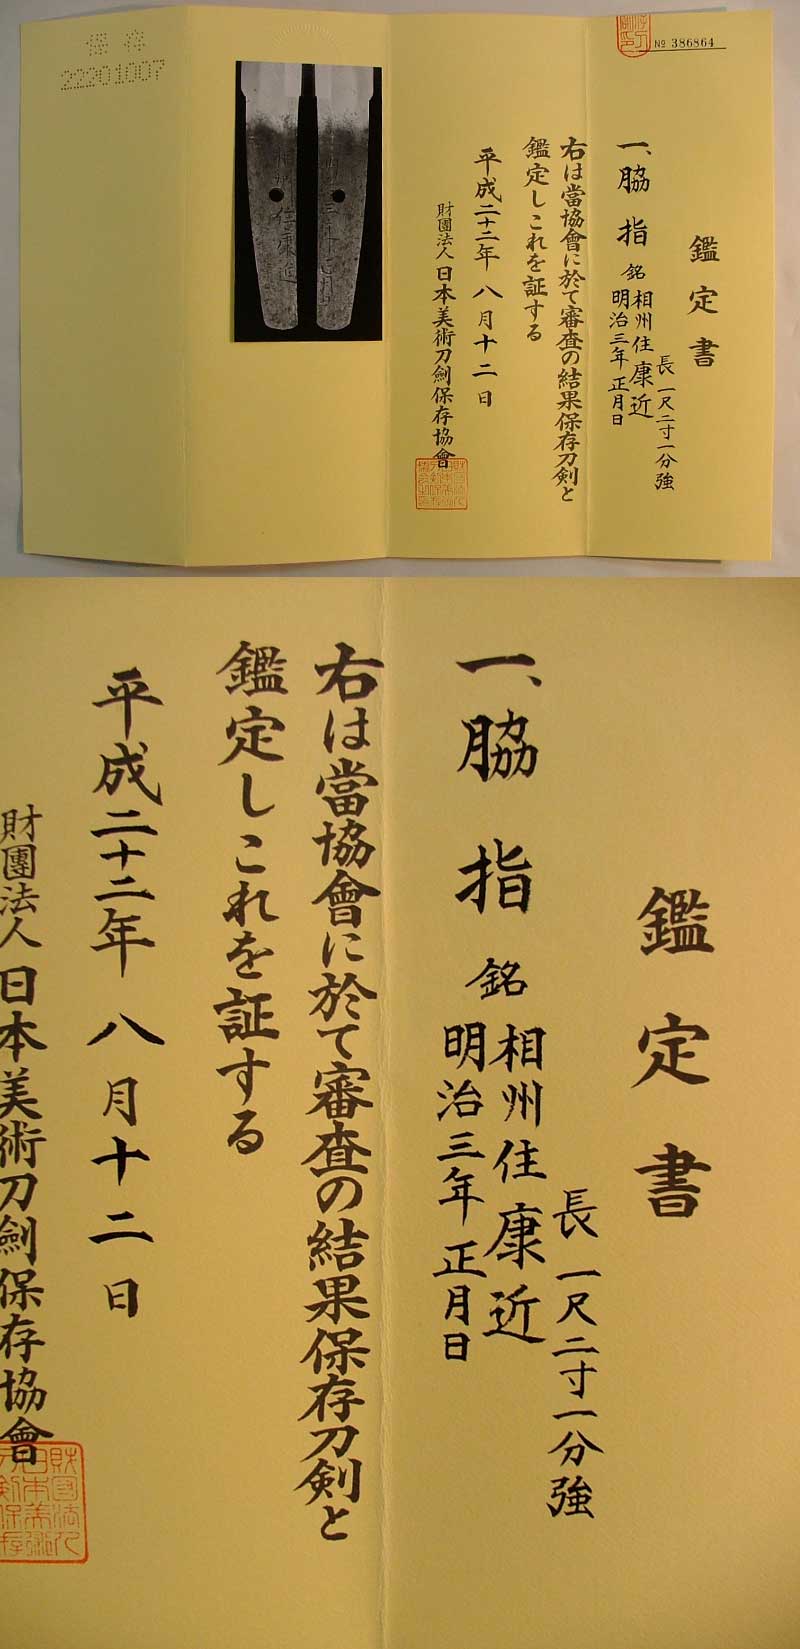 No 386864
鑑定書
長一尺二寸一分強
一、脇指 銘 相州住康近
明治三年正月日
右は當協會に於て審査の結果保存刀剣と
鑑定しこれを証する
平成二十二年八月十二日
財團法人日本美術刀劍保存協會
保存
22201007
鑑定書
長一尺二寸一分強
一、脇指 銘 相州住康近
明治三年正月日
右は當協會に於て審査の結果保存刀剣と
鑑定しこれを証する
平成二十二年八月十二日
財團法人日本美術刀劍保存協會